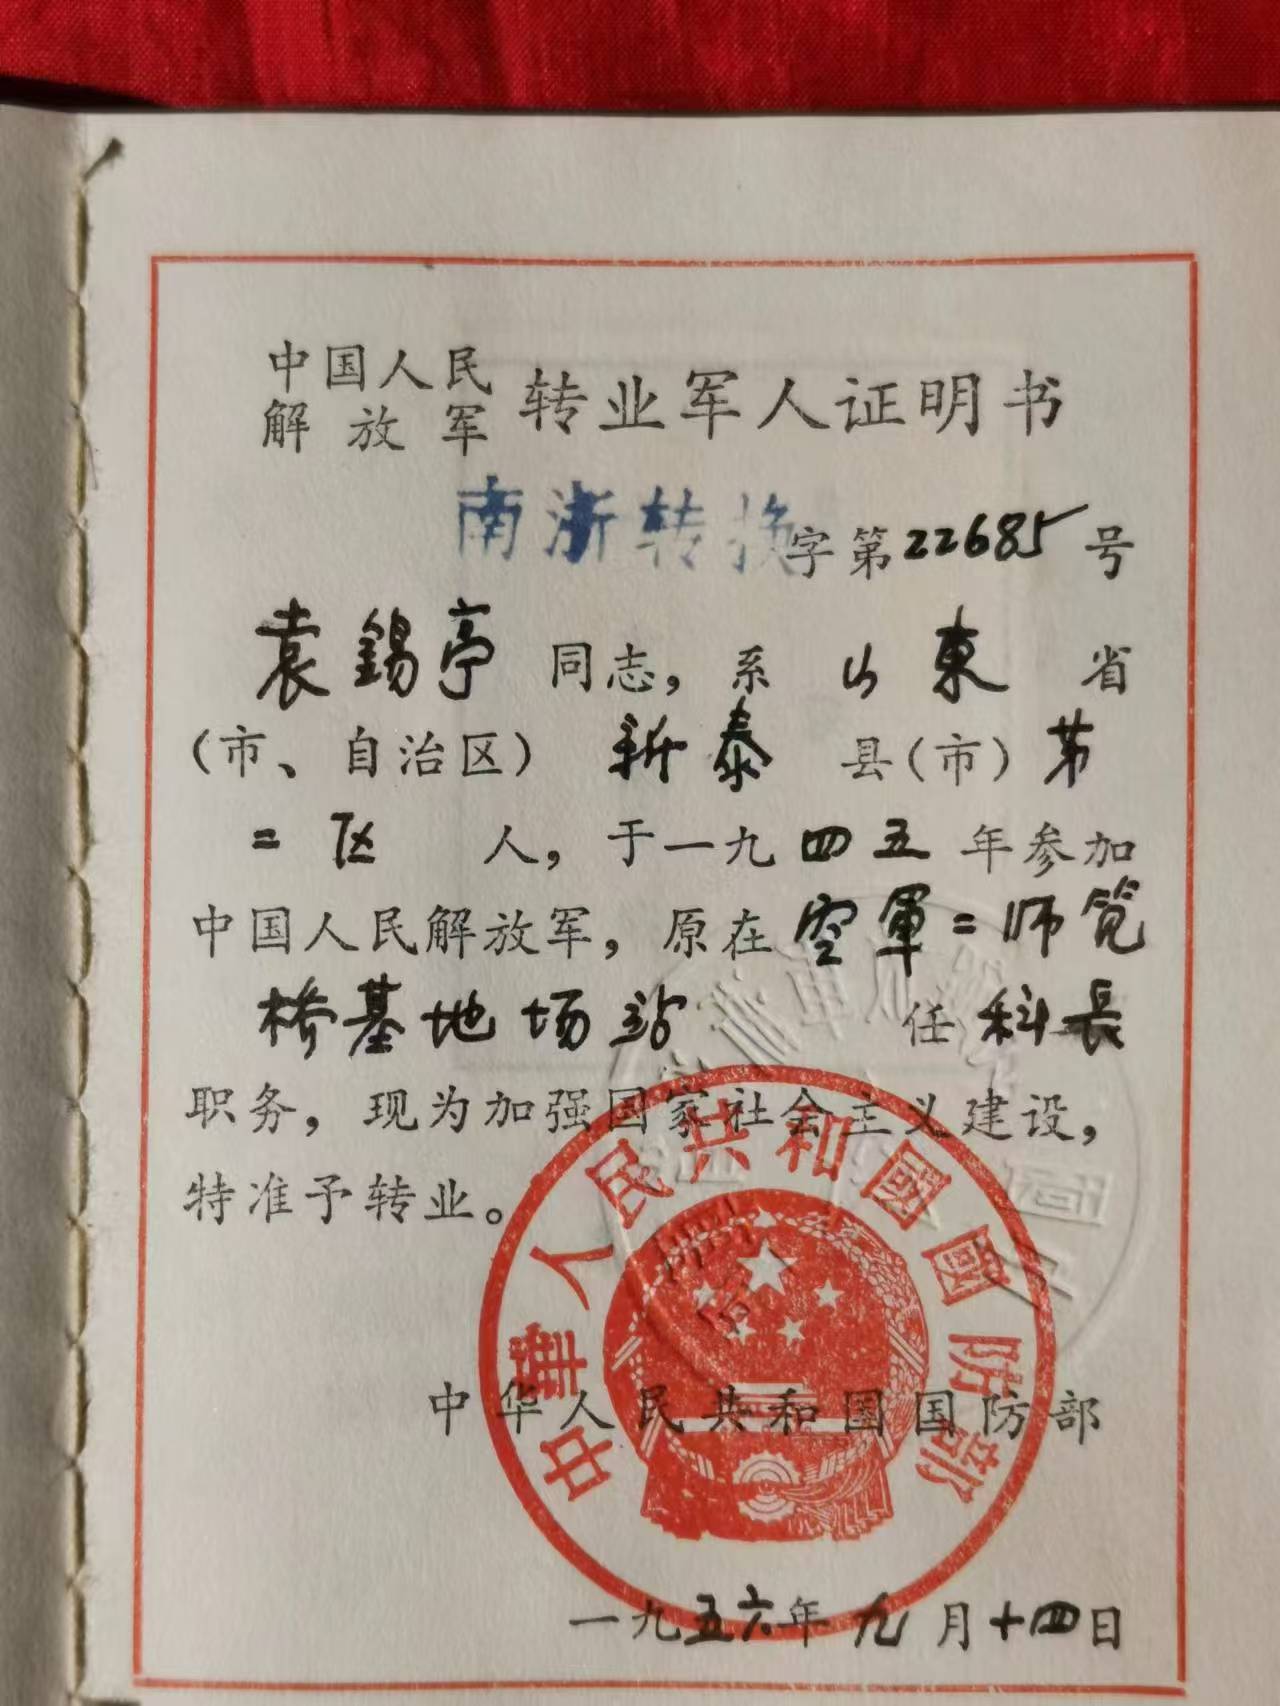 中国人民
解放军 转业军人证明书
南浙转换字第22685号
袁錫亭 同志，系 山東 省
（市、自治区） 新泰 县（市） 第
二区 人，于一九四五年参加
中国人民解放军，原在空軍二师筧
桥基地场站 任科長
职务，现为加强国家社会主义建设，
特准予转业。
中华人民共和国国防部
一九五六年九月十四日
中華人民共和國國防部